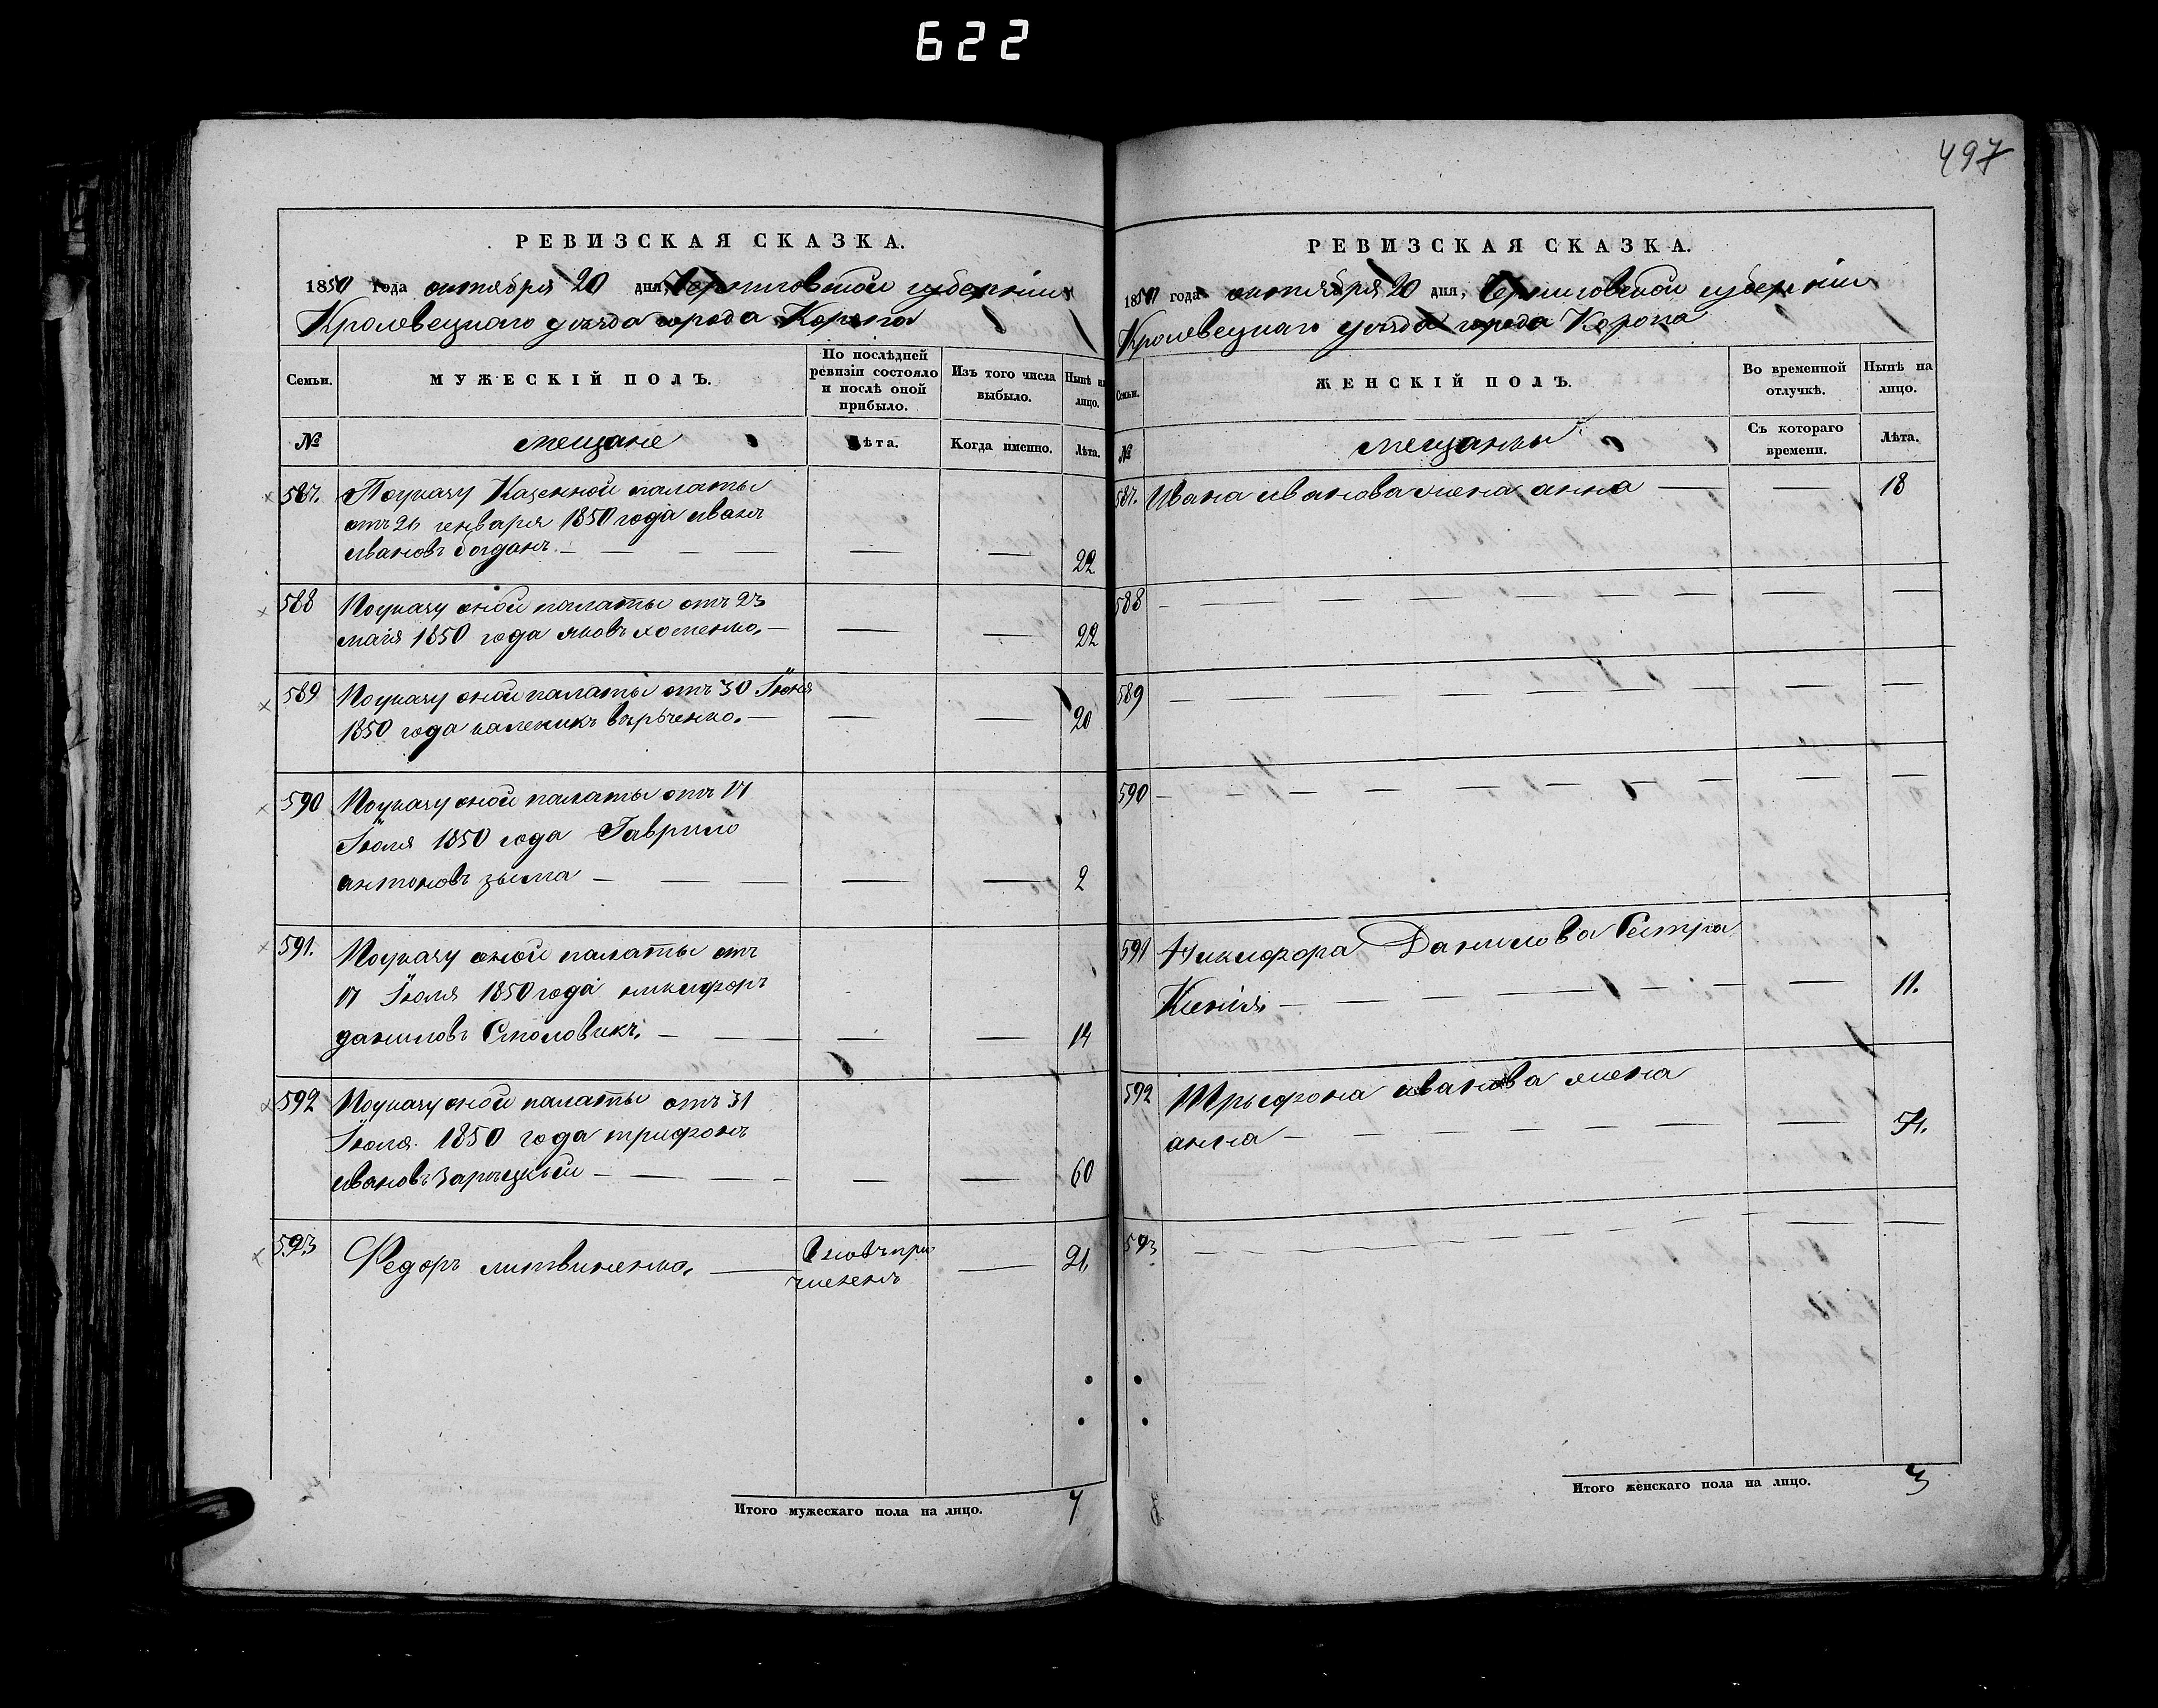 622
497
РЕВИЗСКАЯ СКАЗКА.
1850 года октября 20 дня, Черниговской губерніи
Кролевецкаго уезда города Коропа
Семьи.
МУЖЕСКІЙ ПОЛЪ.
По послѣдней ревизіи состояло и послѣ оной прибыло.
Изъ того числа выбыло.
Нынѣ на лицо.
№
мещане
Лѣта.
Когда именно.
Лѣта.
587. Поуказу Казенной палаты
отъ 21 генваря 1850 года иванъ
ивановъ богданъ. — — — — — — 22
588 Поуказу оной палаты отъ 23
маія 1850 года яковъ хоменко. — — — 22
589 Поуказу оной палаты отъ 30 Іюня
1850 года каленикъ — — — 20
590 Поуказу оной палаты отъ 17
Іюля 1850 года Гаврило
антоновъ зыма — — — — — 2
591. Поуказу оной палаты отъ
17 Іюля 1850 года никифоръ
даниловъ Смоловикъ. — — — — 14
592 Поуказу оной палаты отъ 31
Іюля 1850 года трифонъ
ивановъ Зарецкый — — — — — — 60
593 Федоръ литвиненко. — вновь при — 21.
численъ
Итого мужескаго пола на лицо. 7
РЕВИЗСКАЯ СКАЗКА.
1850 года октября 20 дня, Черниговской губерніи
Кролевецкаго уезда города Коропа
Семьи.
ЖЕНСКІЙ ПОЛЪ.
Во временной отлучкѣ.
Нынѣ на лицо.
№
мещанкы
Съ котораго времени.
Лѣта.
587. Ивана иванова жена анна — — 18
588 — — — — — — — — — —
589 — — — — — — — — —
590 — — — — — — — — — —
591 Никифора Данилова Сестра
Ксенія — — — — — — — — 11.
592 Трыфона иванова жена
анна — — — — — — — — 51.
593. — — — — — — — — —
Итого женскаго пола на лицо. 3